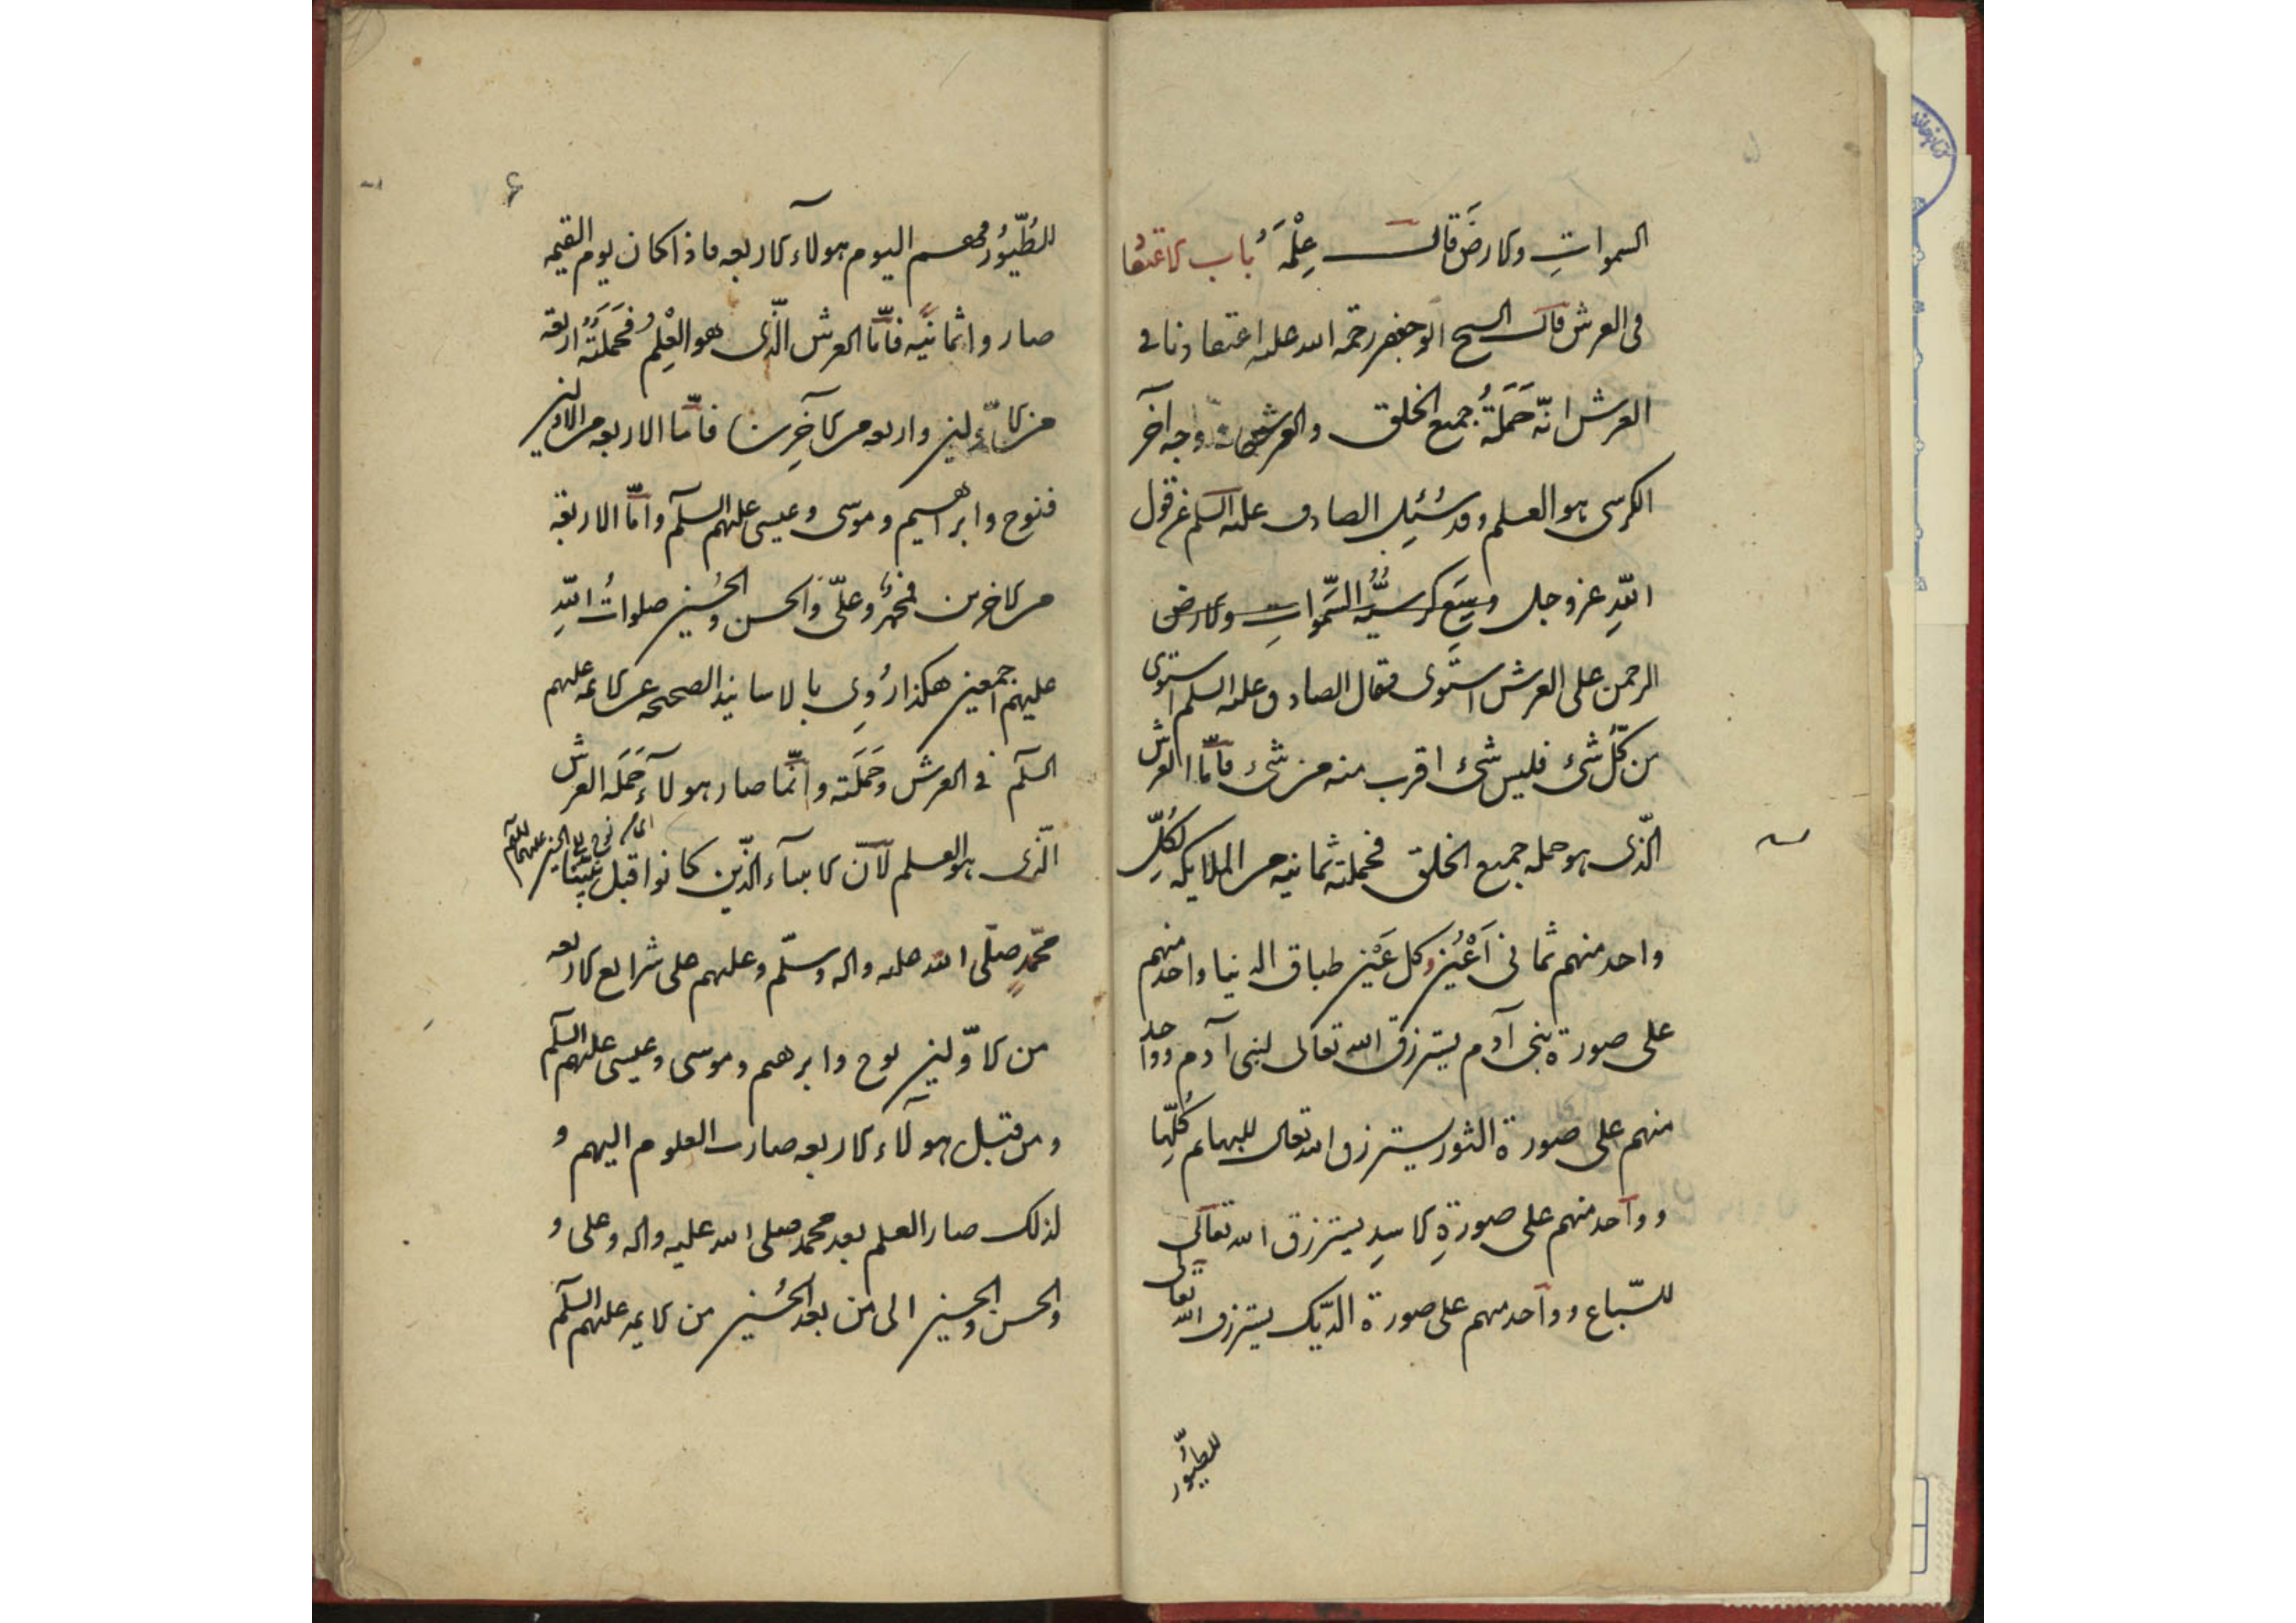 السموات والارض قال عِلْمُهُ باب الاعتقاد
فى العرش قال الشيخ ابو جعفر رحمة الله عليه اعتقادنا فى
العرش انّه حَمَلَةُ جميع الخلق والعرش وجه آخر
الكرسى هو العلم وقد سُئِل الصادق عليه السلم عن قول
اللهِ عز وجل وسِعَ كرسيُّهُ السَّمواتِ والارض
الرحمن على العرش استوى فقال الصادق عليه السلم استوى
من كلّ شئ فليس شئ اقرب منه من شئ فامّا العرش
الّذى هو حمله جميع الخلق فحملته ثمانيه من الملايكه لكُلِّ
واحد منهم ثمانى اَعْيُنٍ وكل عَيْن طباق الدنيا واحد منهم
على صورة بنى آدم يسترزق الله تعالى لبنى آدم وواحد
منهم على صورة الثور يسترزق الله تعالى للبهايم كُلِّها
وواحد منهم على صورةِ الاسدِ يسترزق الله تعالى
للسّباع وواحد منهم على صورة الدّيك يسترزق الله تعالى
للطيّور
۶
للطُيّورُ فهم اليوم هولاء الاربعه فاذا كان يوم القيمه
صاروا ثمانيّه فامّا العرش الّذى هو العِلْم فحَمَلَتُهُ اربعة
من الاوّلين واربعه من الآخِرين فامّا الاربعه من الاولين
فنوح وابراهيم وموسى وعيسى عليهم السلم وامّا الاربعة
من الاخرين فمحمّد وعلىّ والحسن والحُسين صلواتُ اللهِ
عليهم اجمعين هكذا رُوِى بالاسانيد الصحيحه عن الائمه عليهم
السلم فى العرش وحَمَلَته وانّما صار هولآءِ حَمَلَه العرش
الّذى هو العلم لآنّ الانبيآء الّذين كانوا قبل نبيّنا
محمّدٍ صلّى الله عليه واله وسلّم وعليهم على شرايع الاربعه
من الاوّلين نوح وابرهيم وموسى وعيسى عليهم السلم
ومن قبل هولآء الاربعه صارت العلوم اليهم و
لذلك صار العلم بعد محمد صلى الله عليه واله وعلى و
الحسن والحسين الى من بعد الحُسين من الايمه عليهم السلم